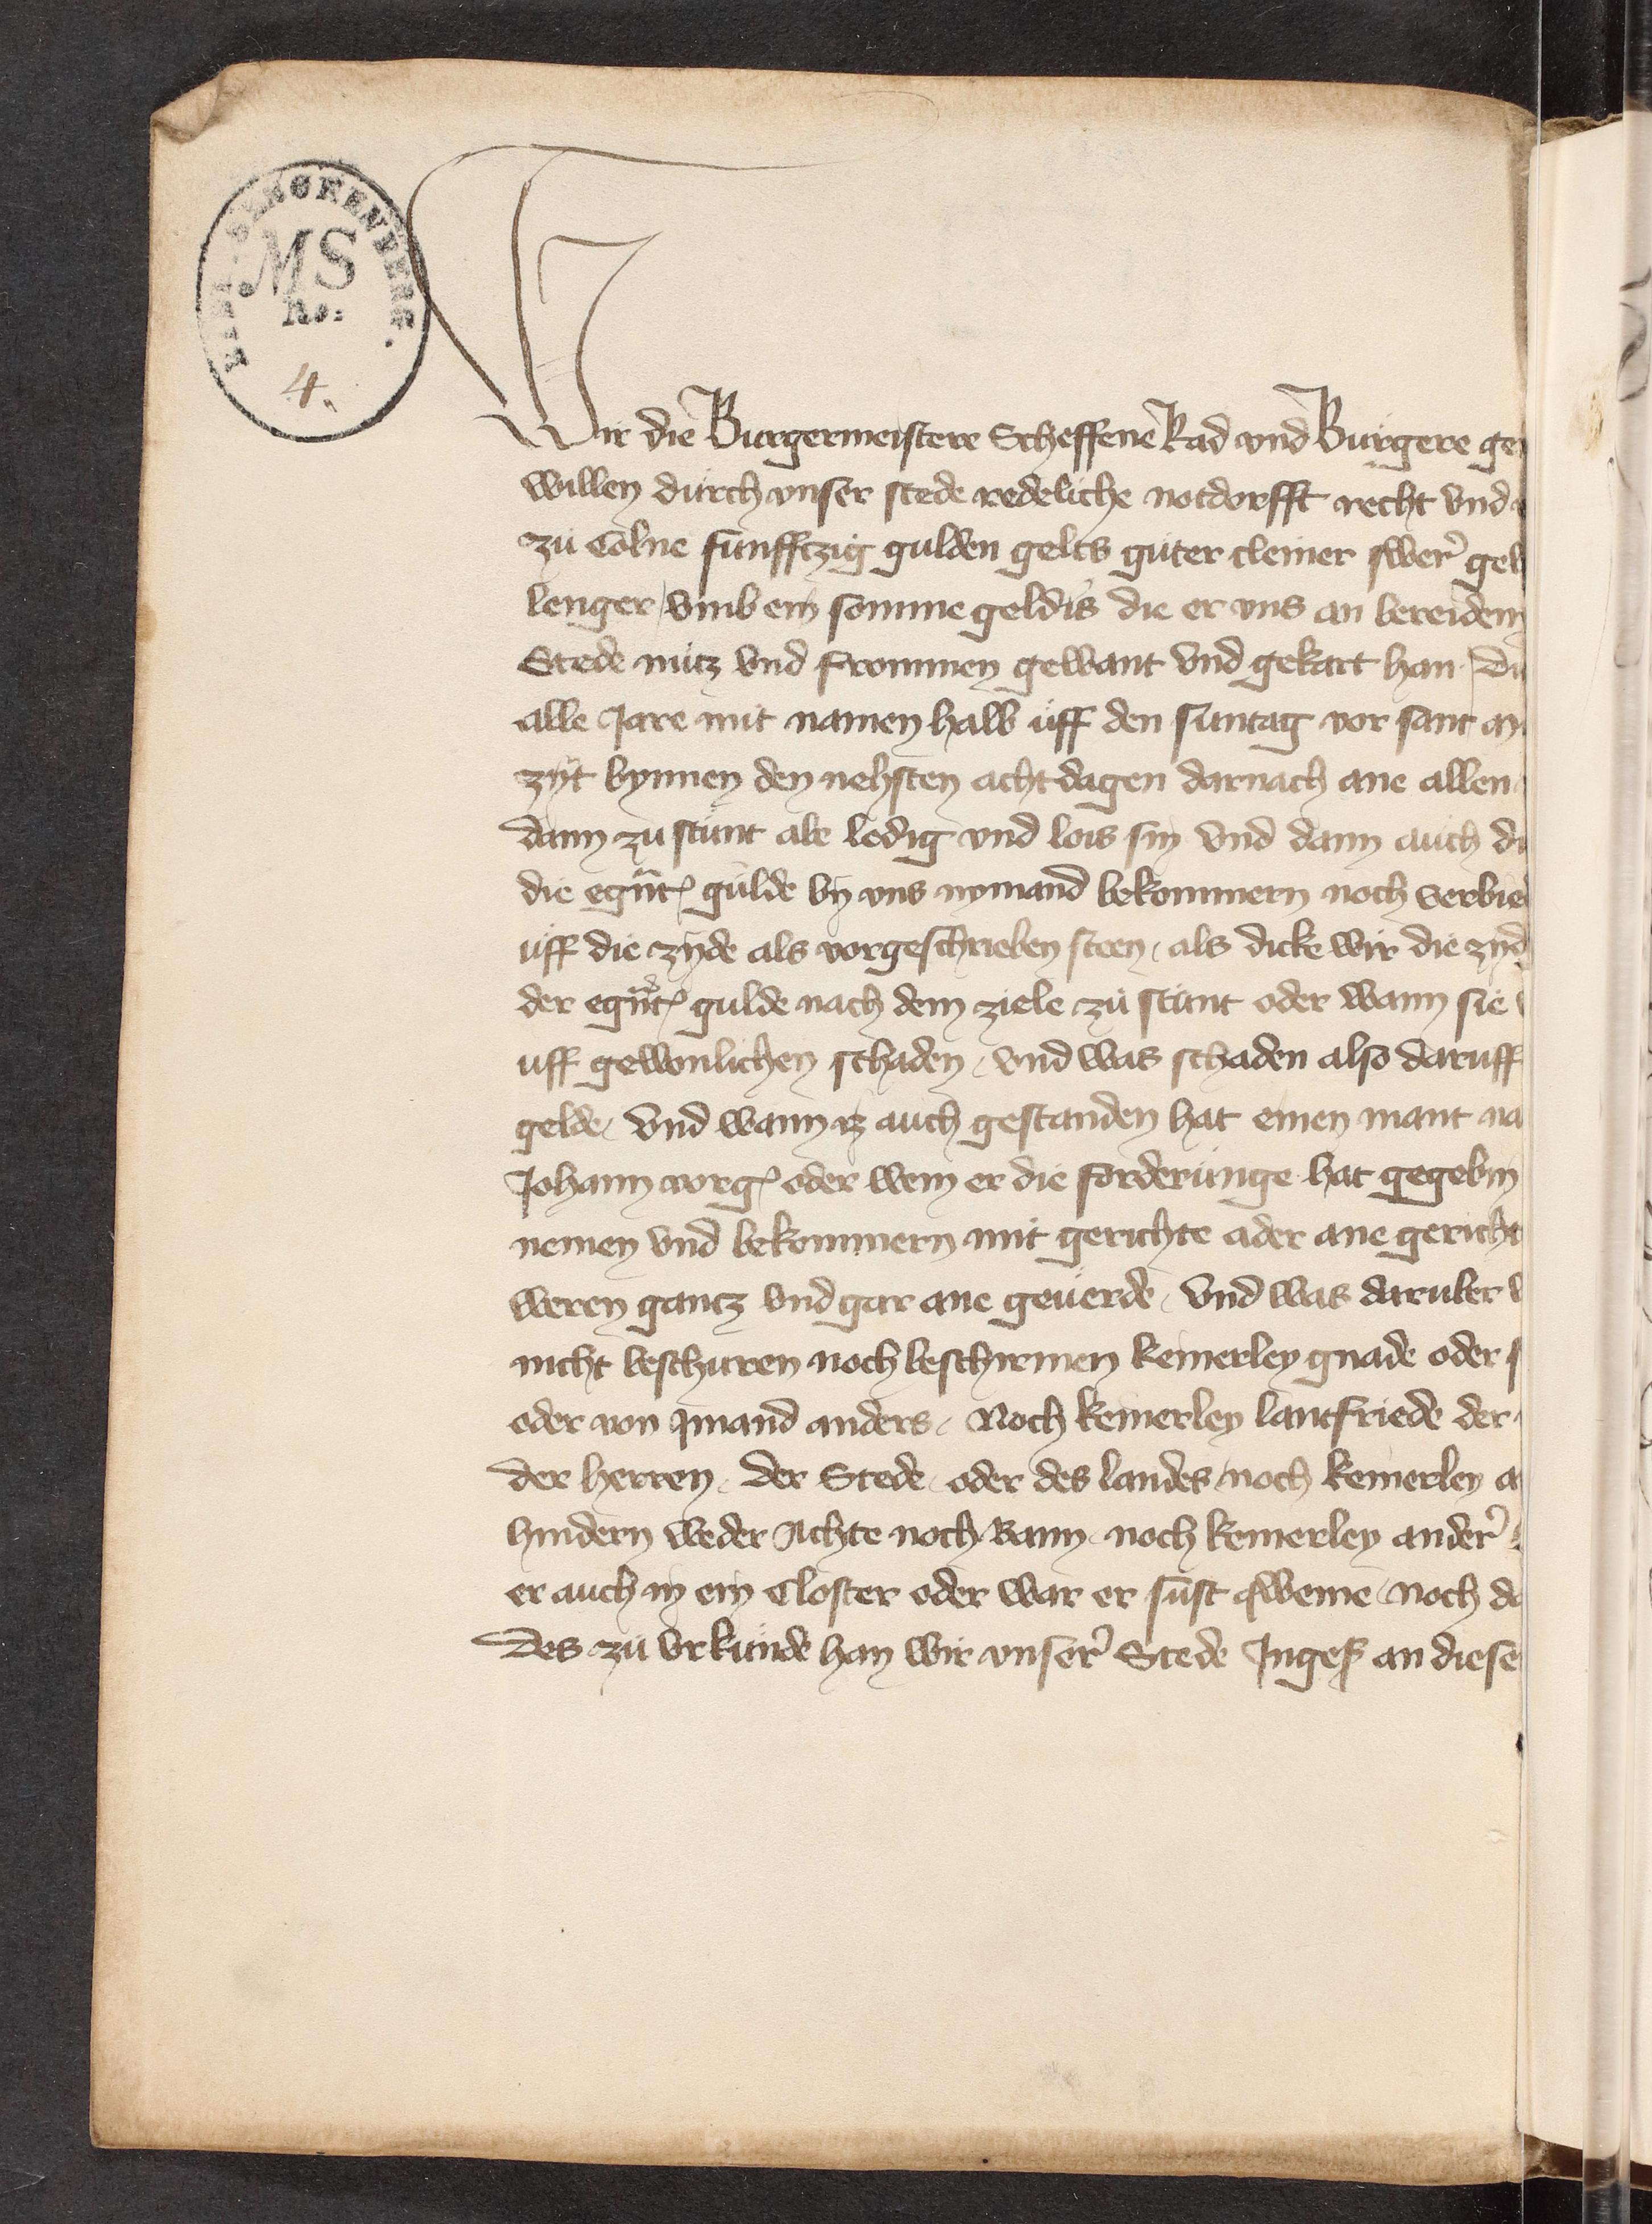 SENCKENBERG.
MS
No:
4.
Wir die Burgermeistere Scheffene Rad vnd Burgere
willen durch vnser stede redeliche notdorfft recht vnd
zu Colne funfftzig gulden gelts guter cleiner swer'
lenger vmb ein somme geldis die er vns an bereidem
Stede nutz vnd frommen gewant vnd gekart han
alle Jare mit namen halb uff den suntag vor sant
zyt bynnen den nehsten acht dagen darnach ane allen
dann zu stunt abe ledig vnd lois sin vnd dann auch
die egnt gulde by vns nymand bekommern noch
uff die zyde als vorgeschrieben steen als dicke wir die
der egnt gulde nach dem ziele zu stunt oder wann sie
uff gewonlichen schaden vnd was schaden also daruff
gelde vnd wann iz auch gestanden hat einen mant
Johann vorg oder wem er die forderunge hat gegebin
nemen vnd bekommern mit gerichte ader ane
weren gantz vnd gar ane geuerde vnd was daruber
nicht beschuren noch beschirmen keinerley gnade oder
oder von ymand anders Noch keinerley lantfriede der
der herren der Stede oder des landes noch keinerley
hindern weder Achte noch Bann noch keinerley ander'
er auch in ein Closter oder war er sust qweme noch
Des zu vrkunde han wir vnser' Stede Ingeß an